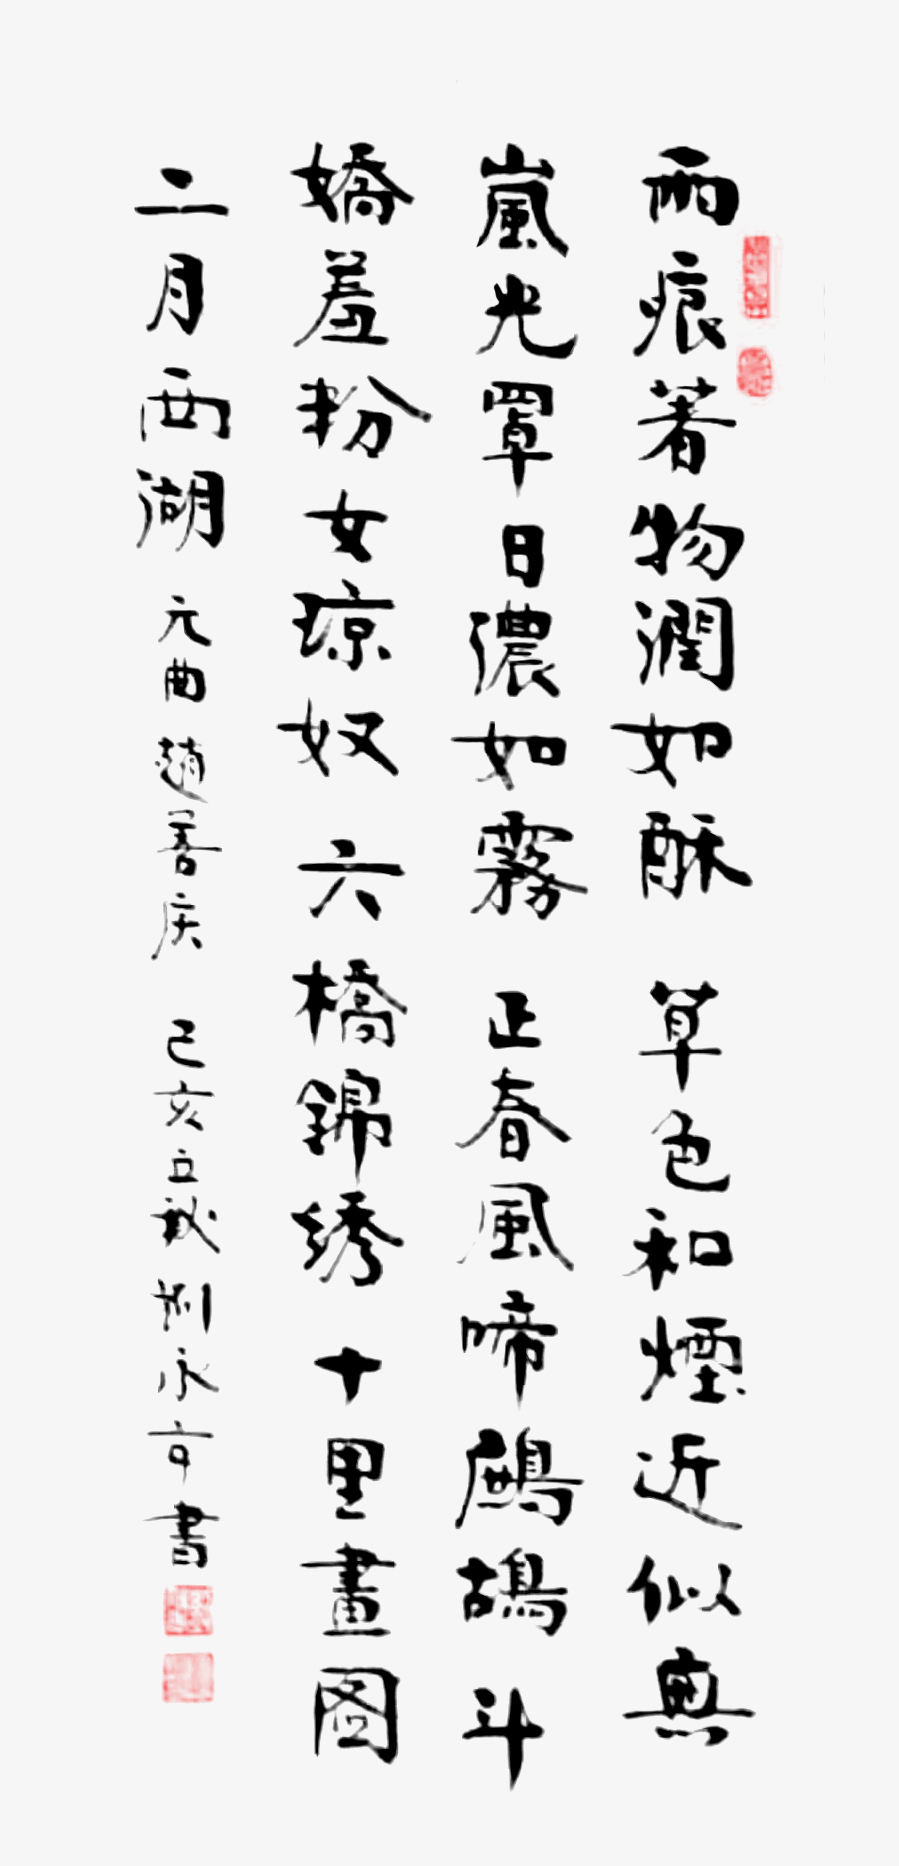 雨痕著物潤如酥 草色和煙近似無
嵐光罩日濃如霧 正春風啼鷓鴣 斗
嬌羞粉女琼奴 六橋錦绣 十里畫图
二月西湖 元曲趙善庆 己亥立秋荆永亨書